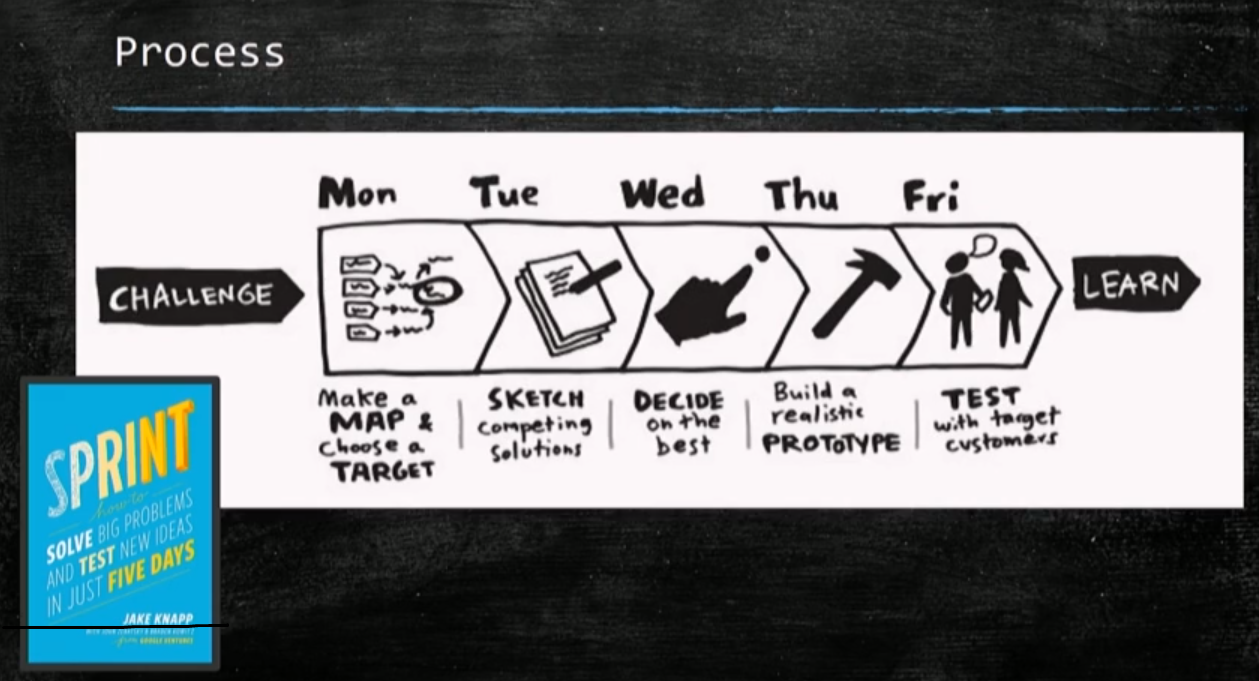 Process
Mon Tue Wed Thu Fri
CHALLENGE
LEARN
Make a
MAP &
choose a
TARGET
SKETCH
competing
solutions
DECIDE
on the
best
Build a
realistic
PROTOTYPE
TEST
with target
customers
SPRINT
how to
SOLVE BIG PROBLEMS
AND TEST NEW IDEAS
IN JUST FIVE DAYS
JAKE KNAPP